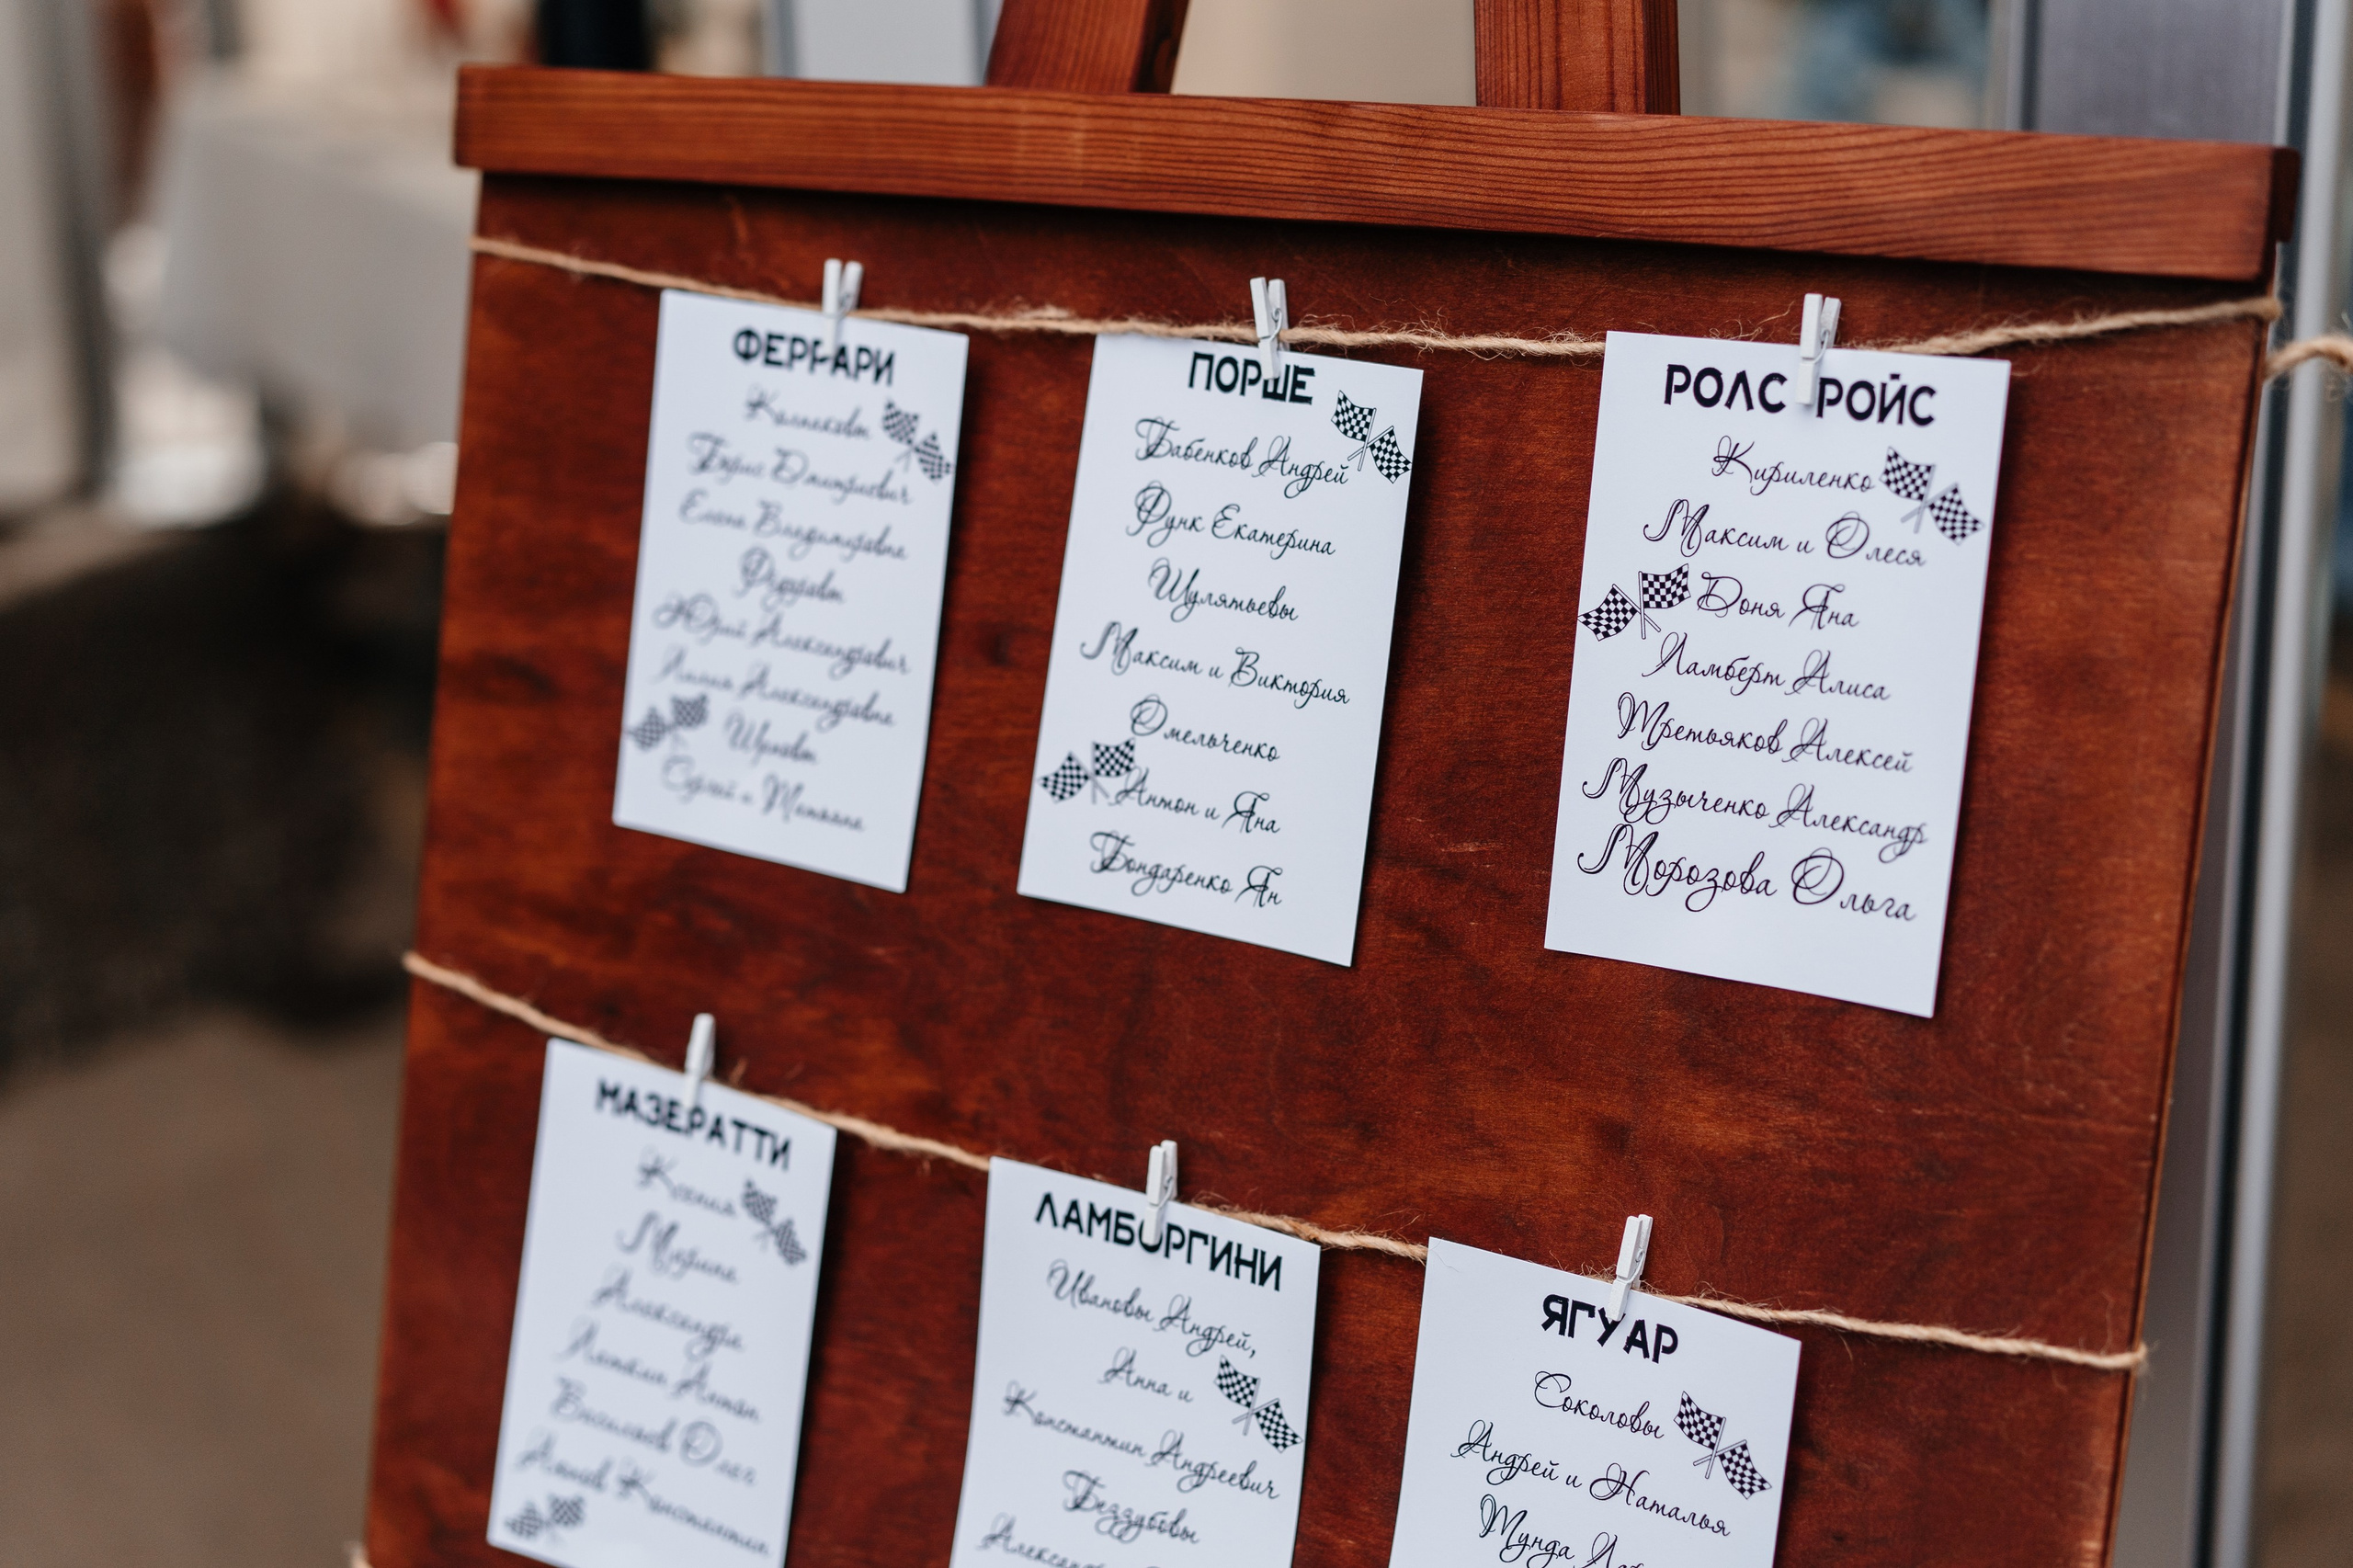 ФЕРРАРИ
Борис Дмитриевич
Елена Владимировна
Юрий Александрович
Александровна
Сергей и Татьяна
ПОРШЕ
Бабенков Андрей
Функ Екатерина
Шулятьевы
Максим и Виктория
Омельченко
Антон и Яна
Бондаренко Ян
РОЛС РОЙС
Кириленко
Максим и Олеся
Доня Яна
Ламберт Алиса
Третьяков Алексей
Музыченко Александр
Морозова Ольга
МАЗЕРАТТИ
Ксения
Марина
Александра
Антон
Васильев Олег
Константин
ЛАМБОРГИНИ
Ивановы Андрей,
Анна и
Константин Андреевич
Беззубовы
ЯГУАР
Соколовы
Андрей и Наталья
Тунда